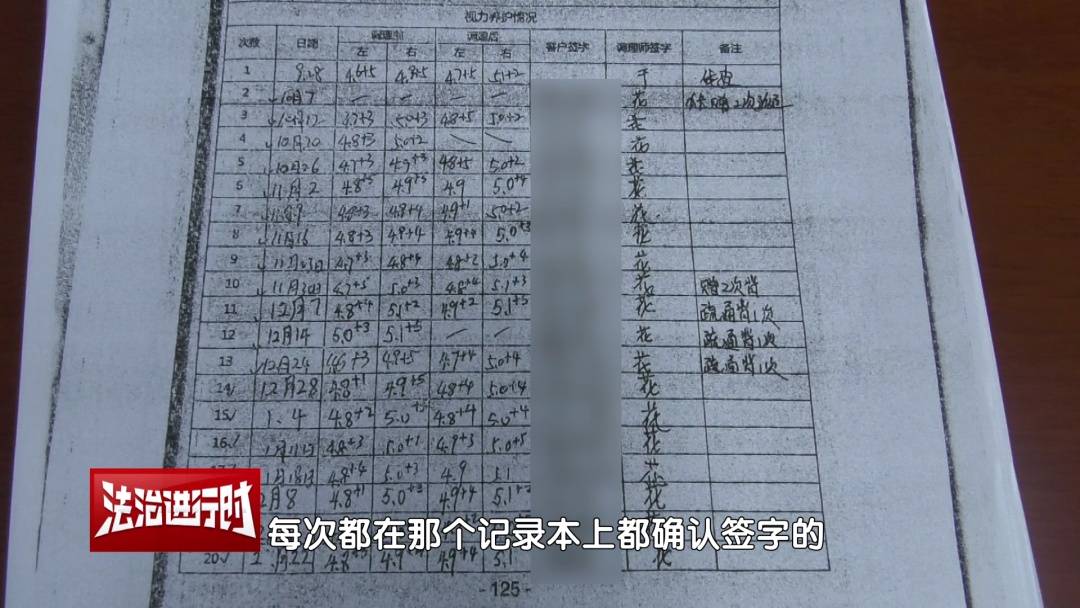 视力养护情况
次数 日期 调理前 调理后 客户签字 调理师签字 备注
左 右 左 右
1 9.28 4.6+5 4.8+5 4.7+5 5.1+2 于
2 10月7 — — — — 花
3 10月12 4.7+3 5.0+3 4.8+5 5.0+2 花
4 10月20 4.8+3 5.0+2 — — 花
5 10月26 4.7+3 4.9+3 4.8+5 5.0+2 花
6 11月2 4.8+5 4.9+5 4.9 5.0+4 花
7 11.9 4.8+3 4.8+4 4.9+1 5.0+2 花
8 11月16 4.8+3 4.9+4 4.9+4 5.0+3 花
9 11月23日 4.7+3 4.8+4 4.8+2 5.0+4 花
10 11月30日 4.7+5 5.0+3 4.8+4 5.1+3 花 赠2次背
11 12月7 4.8+4 5.1+2 4.9+2 5.1+3 花 疏通背1次
12 12月14 5.0+3 5.1+5 — — 花 疏通背1次
13 12月24 4.6+3 4.8+5 4.7+4 5.0+4 花 疏通背1次
14 12月28 4.8+1 4.9+5 4.8+4 5.0+4 花
15 1.4 4.8+2 5.0 4.8+4 5.0+4 花
16 1月11日 4.8+3 5.0+1 4.9+3 5.0+5 花
1月18日 4.8+4 5.0+3 4.9 5.1 花
月8 4.8+1 5.0+3 4.9+4 5.1+2 花
法治进行时
每次都在那个记录本上都确认签字的
20 4.9+4 5.1 花
- 125 -